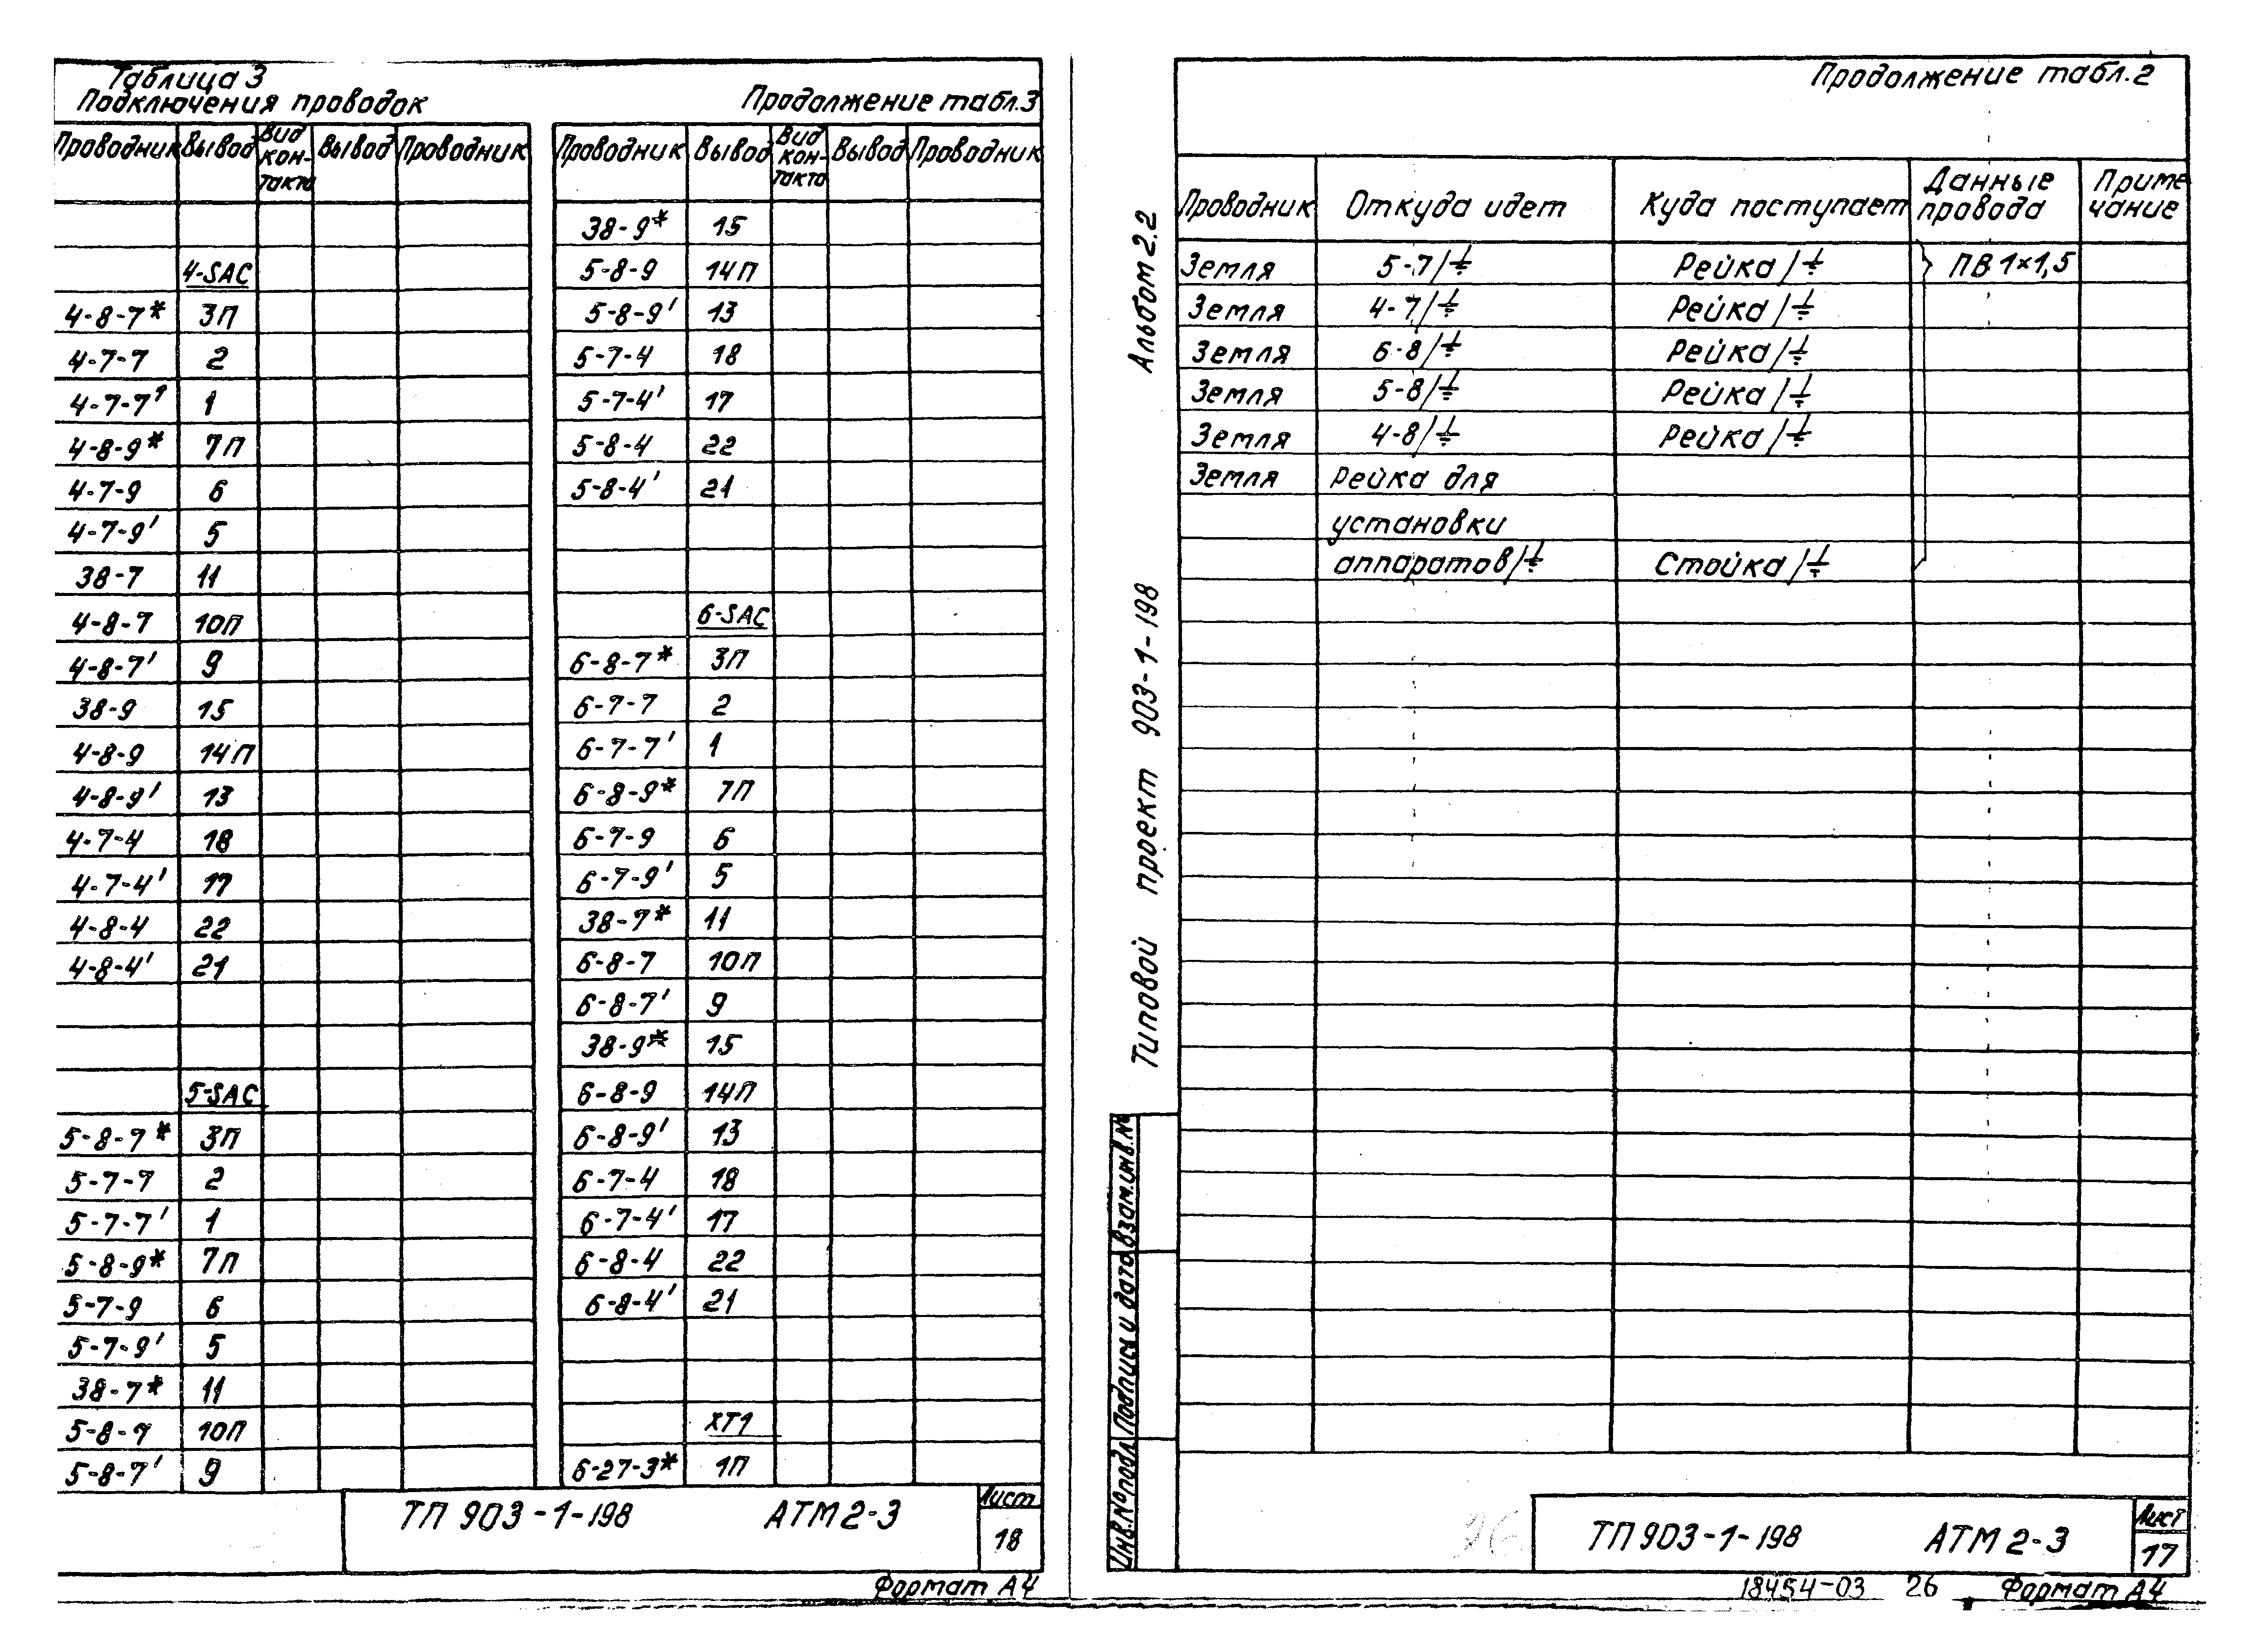 Таблица 3
Подключения проводок
Проводник Вывод Вид кон-такта Вывод Проводник
4-SAC
4-8-7* 3П
4-7-7 2
4-7-7' 1
4-8-9* 7П
4-7-9 6
4-7-9' 5
38-7 11
4-8-7 10П
4-8-7' 9
38-9 15
4-8-9 14П
4-8-9' 13
4-7-4 18
4-7-4' 17
4-8-4 22
4-8-4' 21
5-SAC
5-8-7* 3П
5-7-7 2
5-7-7' 1
5-8-9* 7П
5-7-9 6
5-7-9' 5
38-7* 11
5-8-7 10П
5-8-7' 9
Продолжение табл.3
Проводник Вывод Вид кон-такта Вывод Проводник
38-9* 15
5-8-9 14П
5-8-9' 13
5-7-4 18
5-7-4' 17
5-8-4 22
5-8-4' 21
6-SAC
6-8-7* 3П
6-7-7 2
6-7-7' 1
6-8-9* 7П
6-7-9 6
6-7-9' 5
38-7* 11
6-8-7 10П
6-8-7' 9
38-9* 15
6-8-9 14П
6-8-9' 13
6-7-4 18
6-7-4' 17
6-8-4 22
6-8-4' 21
XT1
6-27-3* 1П
ТП 903-1-198 АТМ2-3 Лист
18
Формат А4
Альбом 2.2
Типовой проект 903-1-198
Взам.инв.№
Подпись и дата
Инв.№ подл.
Продолжение табл.2
Проводник Откуда идет Куда поступает Данные провода Приме чание
Земля 5-7/⏚ Рейка/⏚ ПВ 1×1,5
Земля 4-7/⏚ Рейка/⏚
Земля 6-8/⏚ Рейка/⏚
Земля 5-8/⏚ Рейка/⏚
Земля 4-8/⏚ Рейка/⏚
Земля Рейка для
установки
аппаратов/⏚ Стойка/⏚
ТП 903-1-198 АТМ2-3 Лист
17
18454-03 26 Формат А4